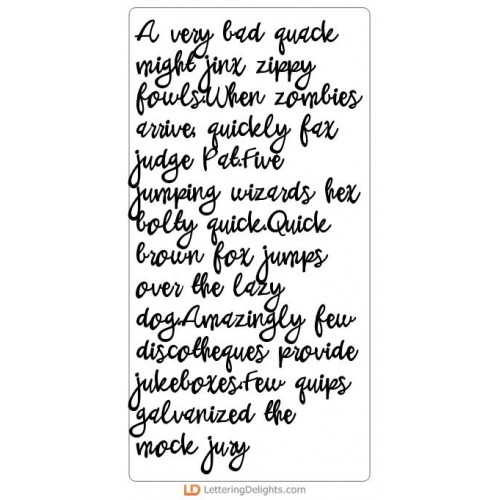 A very bad quack
might jinx zippy
fowls.When zombies
arrive, quickly fax
judge Pat.Five
jumping wizards hex
bolty quick.Quick
brown fox jumps
over the lazy
dog.Amazingly few
discotheques provide
jukeboxes.Few quips
galvanized the
mock jury
LD LetteringDelights.com